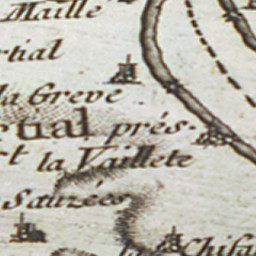 Maille
tial
la Greve
tial prés.
t la Vaillete
Sauzées